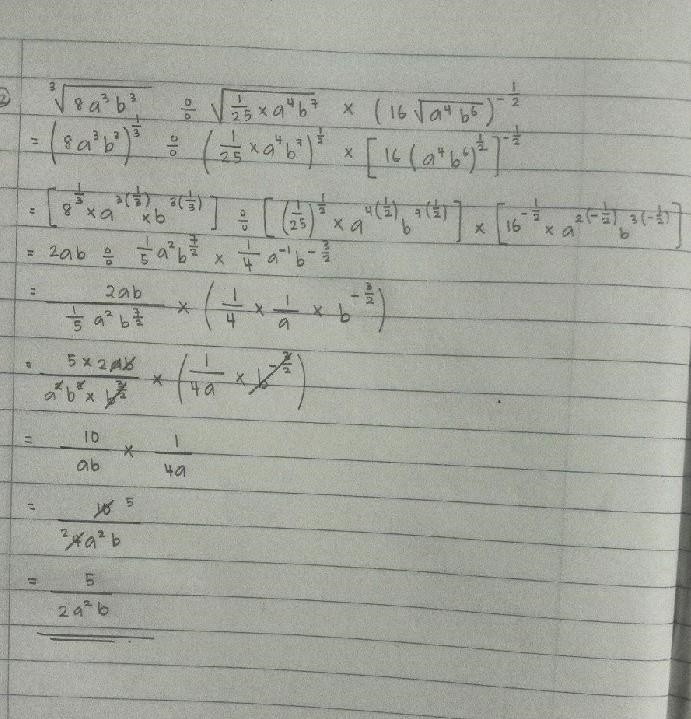 2) ∛(8a³b³) ÷ √(1/25 × a⁴b⁷) × (16√(a⁴b⁶))^(-1/2)
= (8a³b³)^(1/3) ÷ (1/25 × a⁴b⁷)^(1/2) × [16(a⁴b⁶)^(1/2)]^(-1/2)
= [8^(1/3) × a^(3(1/3)) × b^(3(1/3))] ÷ [(1/25)^(1/2) × a^(4(1/2)) b^(7(1/2))] × [16^(-1/2) × a^(2(-1/2)) b^(3(-1/2))]
= 2ab ÷ 1/5 a²b^(7/2) × 1/4 a⁻¹b^(-3/2)
= 2ab / (1/5 a²b^(7/2)) × (1/4 × 1/a × b^(-3/2))
= (5 × 2ab) / (a²b² × b^(3/2)) × (1/4a × b^(-3/2))
= 10/ab × 1/4a
= 10 5 / 2 4a²b
= 5 / 2a²b